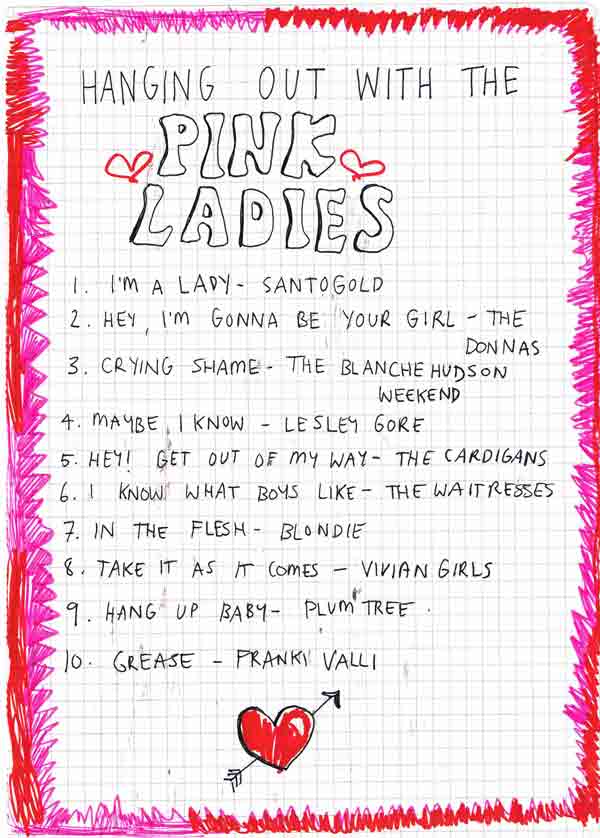 HANGING OUT WITH THE
PINK
LADIES
1. I'M A LADY - SANTOGOLD
2. HEY, I'M GONNA BE YOUR GIRL - THE
DONNAS
3. CRYING SHAME - THE BLANCHE HUDSON
WEEKEND
4. MAYBE I KNOW - LESLEY GORE
5. HEY! GET OUT OF MY WAY - THE CARDIGANS
6. I KNOW WHAT BOYS LIKE - THE WAITRESSES
7. IN THE FLESH - BLONDIE
8. TAKE IT AS IT COMES - VIVIAN GIRLS
9. HANG UP BABY - PLUMTREE.
10. GREASE - FRANKI VALLI